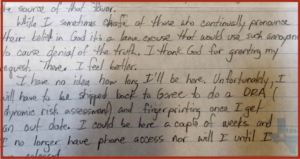 the source of that power.
While I sometimes chafe at those who continually pronounce
their belief in God it is a lame excuse that would use such annoyance
to cause denial of the truth. I thank God for granting my
request. There, I feel better.
I have no idea how long I'll be here. Unfortunately, I
will have to be shipped back to Goree to do a DRA (
dynamic risk assessment) and fingerprinting once I get
an out date. I could be here a couple of weeks and
I no longer have phone access nor will I until I